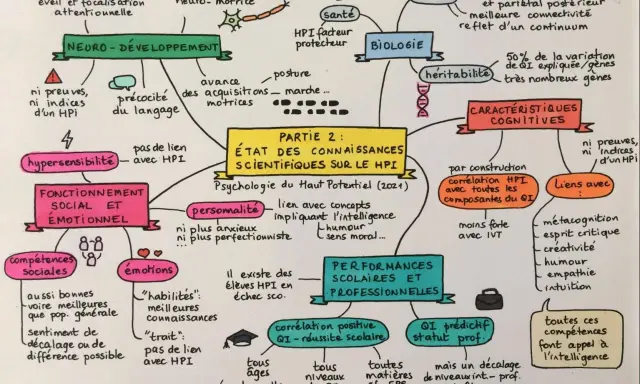 éveil et focalisation
attentionnelle
neuro-motrice
NEURO-DÉVELOPPEMENT
ni preuves,
ni indices
d'un HPi
précocité
du langage
avance
des acquisitions
motrices
posture
marche...
santé
HPI facteur
protecteur
BIOLOGIE
et pariétal postérieur
meilleure connectivité
reflet d'un continuum
héritabilité
50% de la variation
de QI expliquée/gènes
très nombreux gènes
PARTIE 2 :
ÉTAT DES CONNAISSANCES
SCIENTIFIQUES SUR LE HPI
Psychologie du Haut Potentiel (2021)
CARACTÉRISTIQUES
COGNITIVES
par construction
corrélation HPI
avec toutes les
composantes du QI
moins forte
avec IVT
ni preuves,
ni indices
d'un HPi
Liens avec :
métacognition
esprit critique
créativité
humour
empathie
intuition
toutes ces
compétences
font appel à
l'intelligence
hypersensibilité
pas de lien
avec HPI
FONCTIONNEMENT
SOCIAL ET
ÉMOTIONNEL
personnalité
ni plus anxieux
ni plus perfectionniste
...
lien avec concepts
impliquant l'intelligence
humour
sens moral...
compétences
sociales
aussi bonnes
voire meilleures
que pop. générale
sentiment de
décalage ou de
différence possible
émotions
"habilités":
meilleures
connaissances
"trait":
pas de lien
avec HPI
PERFORMANCES
SCOLAIRES ET
PROFESSIONNELLES
il existe des
élèves HPI en
échec sco.
corrélation positive
QI - réussite scolaire
tous
âges
tous
niveaux
toutes
matières
QI prédictif
statut prof.
mais un décalage
de niveau int-prof.